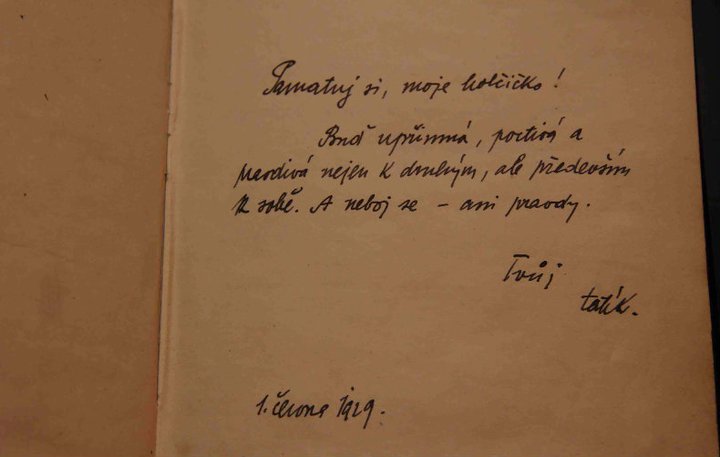 Pamatuj si, moje holčičko!
Buď upřímná, poctivá a
pravdivá nejen k druhým, ale především
k sobě. A neboj se – ani pravdy.
Tvůj
tatík.
1. června 1929.